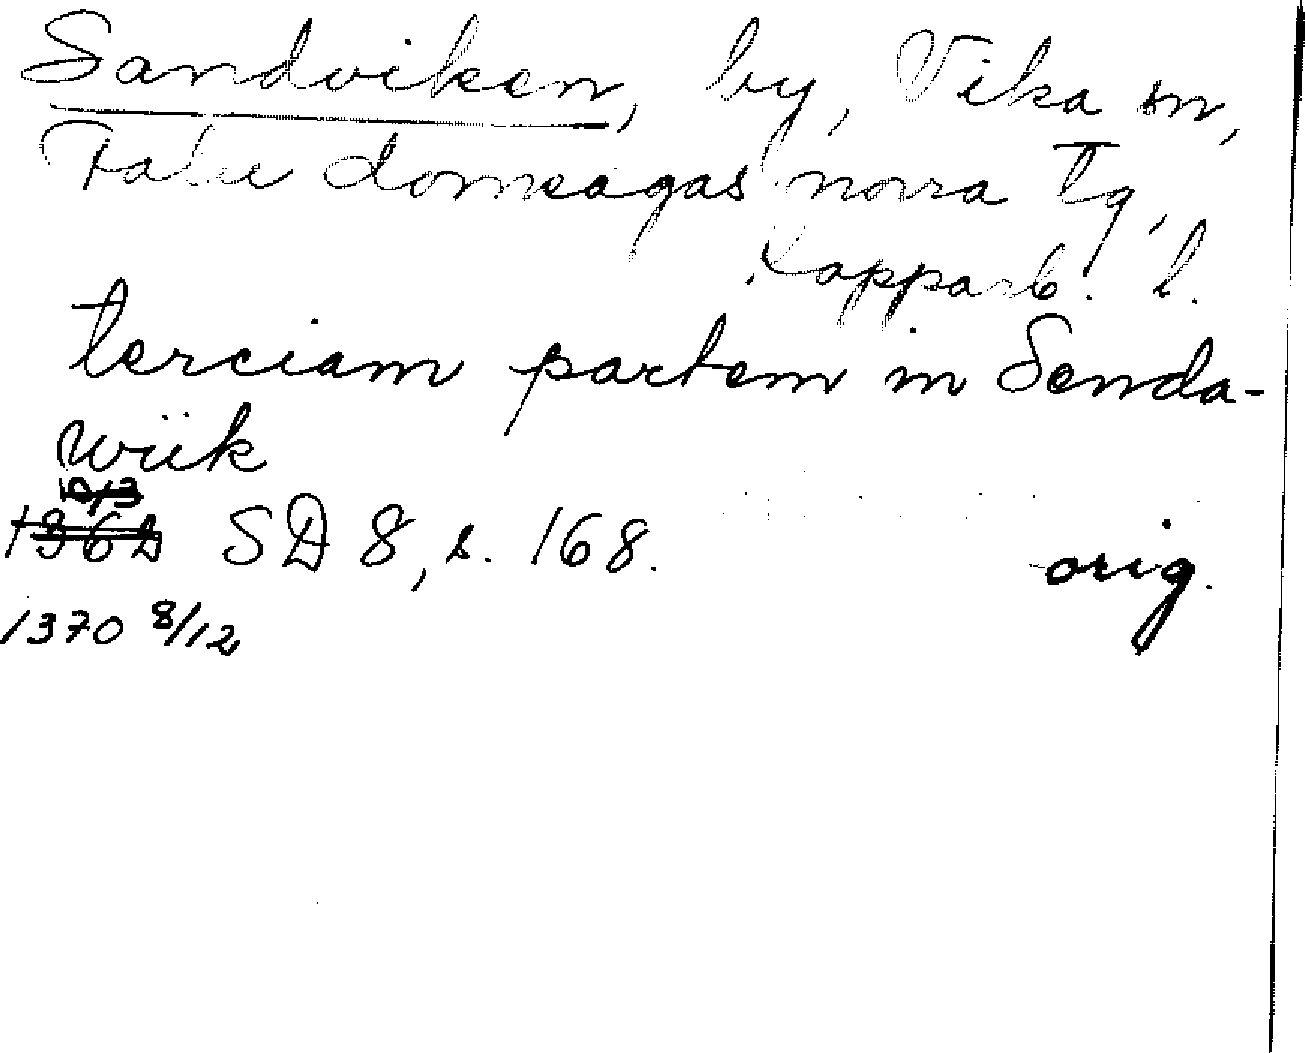 Sandviken, by, Vika sn,
Falu domsagas norra tg,
Kopparb. l.
terciam partem in Senda-
wiik
10/3
1362 SD 8, s. 168. orig.
1370 8/12